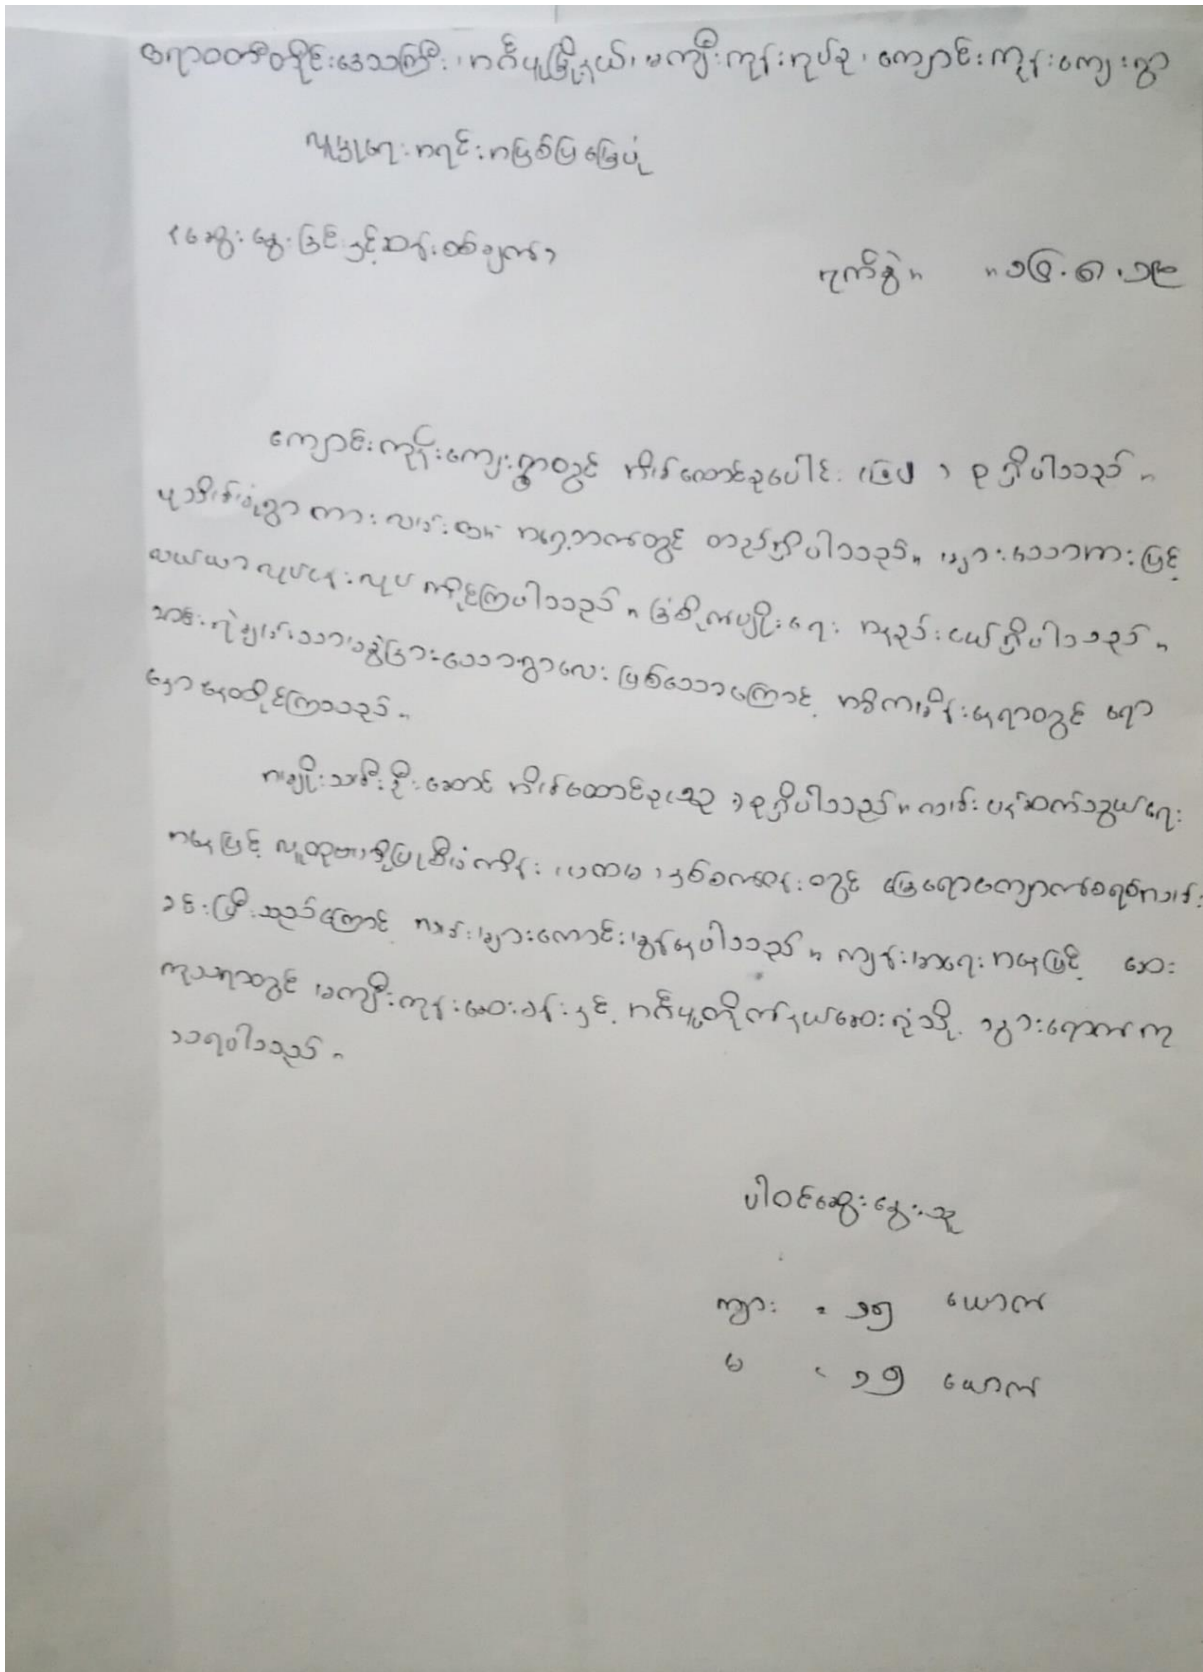 ဧရာဝတီတိုင်းဒေသကြီး၊ အင်္ဂပူမြို့နယ်၊ မကျီးကုန်းအုပ်စု၊ ကျောင်းကုန်းကျေးရွာ
လူမှုရေးအရင်းအမြစ်ပြမြေပုံ
(ဆွေးနွေးခြင်းနှင့်ဆန်းစစ်ချက်)
ရက်စွဲ။ ။
ကျောင်းကုန်းကျေးရွာတွင် အိမ်ထောင်စုပေါင်း ( ) စု ရှိပါသည်။
ရွာကားလမ်း၏ အရှေ့ဘက်တွင် တည်ရှိပါသည်။ များသောအားဖြင့်
လယ်ယာလုပ်ငန်းလုပ်ကိုင်ကြပါသည်။ ခြံစိုက်ပျိုးရေး အနည်းငယ်ရှိပါသည်။
သာခွဲခြားသောရွာလေး ဖြစ်သောကြောင့် အဓိကအိမ်းနေရာတွင် ရော
နှောနေထိုင်ကြသည်။
အမျိုးသမီးဦးဆောင် အိမ်ထောင်စု ( ) စုရှိပါသည်။ လမ်းပန်းဆက်သွယ်ရေး
အနေဖြင့် လူထုဗဟိုပြုစီမံကိန်း ပထမနှစ်စက်ဝန်းတွင် မြေရောကျောက်စရစ်လမ်း
ခင်းပြီးသည့်ကြောင့် လမ်းများကောင်းမွန်နေပါသည်။ ကျန်းမာရေးအနေဖြင့် ဆေး
ကုသရာတွင် မကျီးကုန်းဆေးခန်းနှင့် အင်္ဂပူတိုက်နယ်ဆေးရုံသို့ သွားရောက်ကု
သရပါသည်။
ပါဝင်ဆွေးနွေးသူ
ကျား = ၁၅ ယောက်
မ = ၁၅ ယောက်